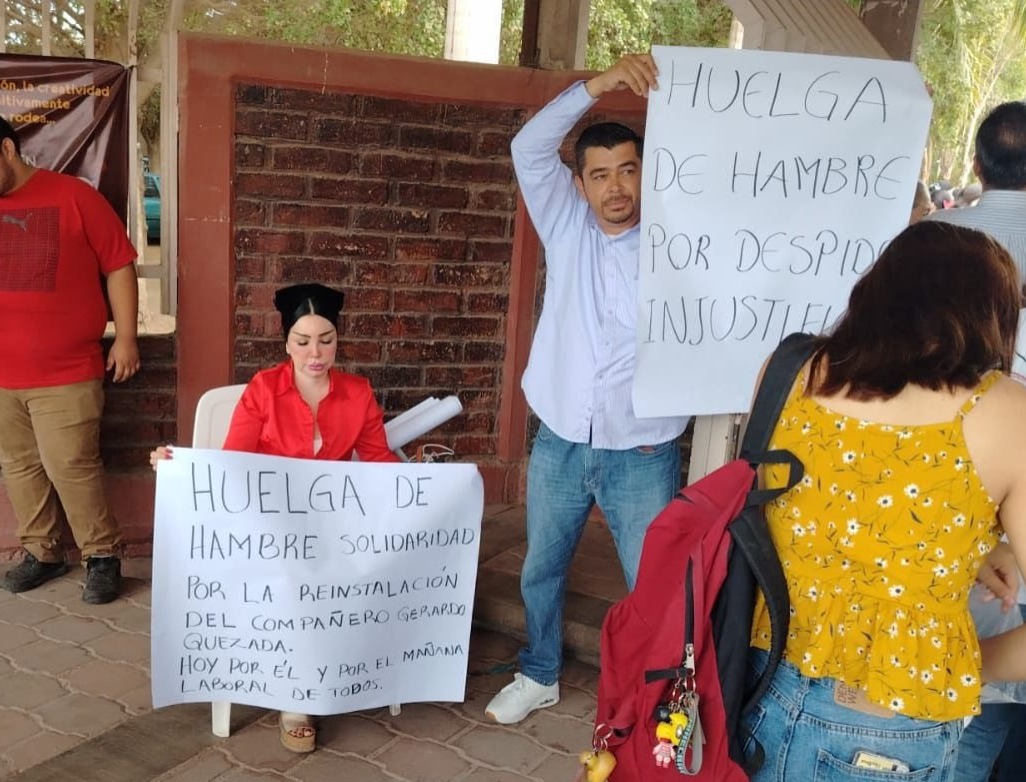 ón, la creatividad
sitivamente
rodea...
HUELGA
DE HAMBRE
POR DESPIDO
HUELGA DE
HAMBRE SOLIDARIDAD
POR LA REINSTALACIÓN
DEL COMPAÑERO GERARDO
QUEZADA.
HOY POR ÉL Y POR EL MAÑANA
LABORAL DE TODOS.